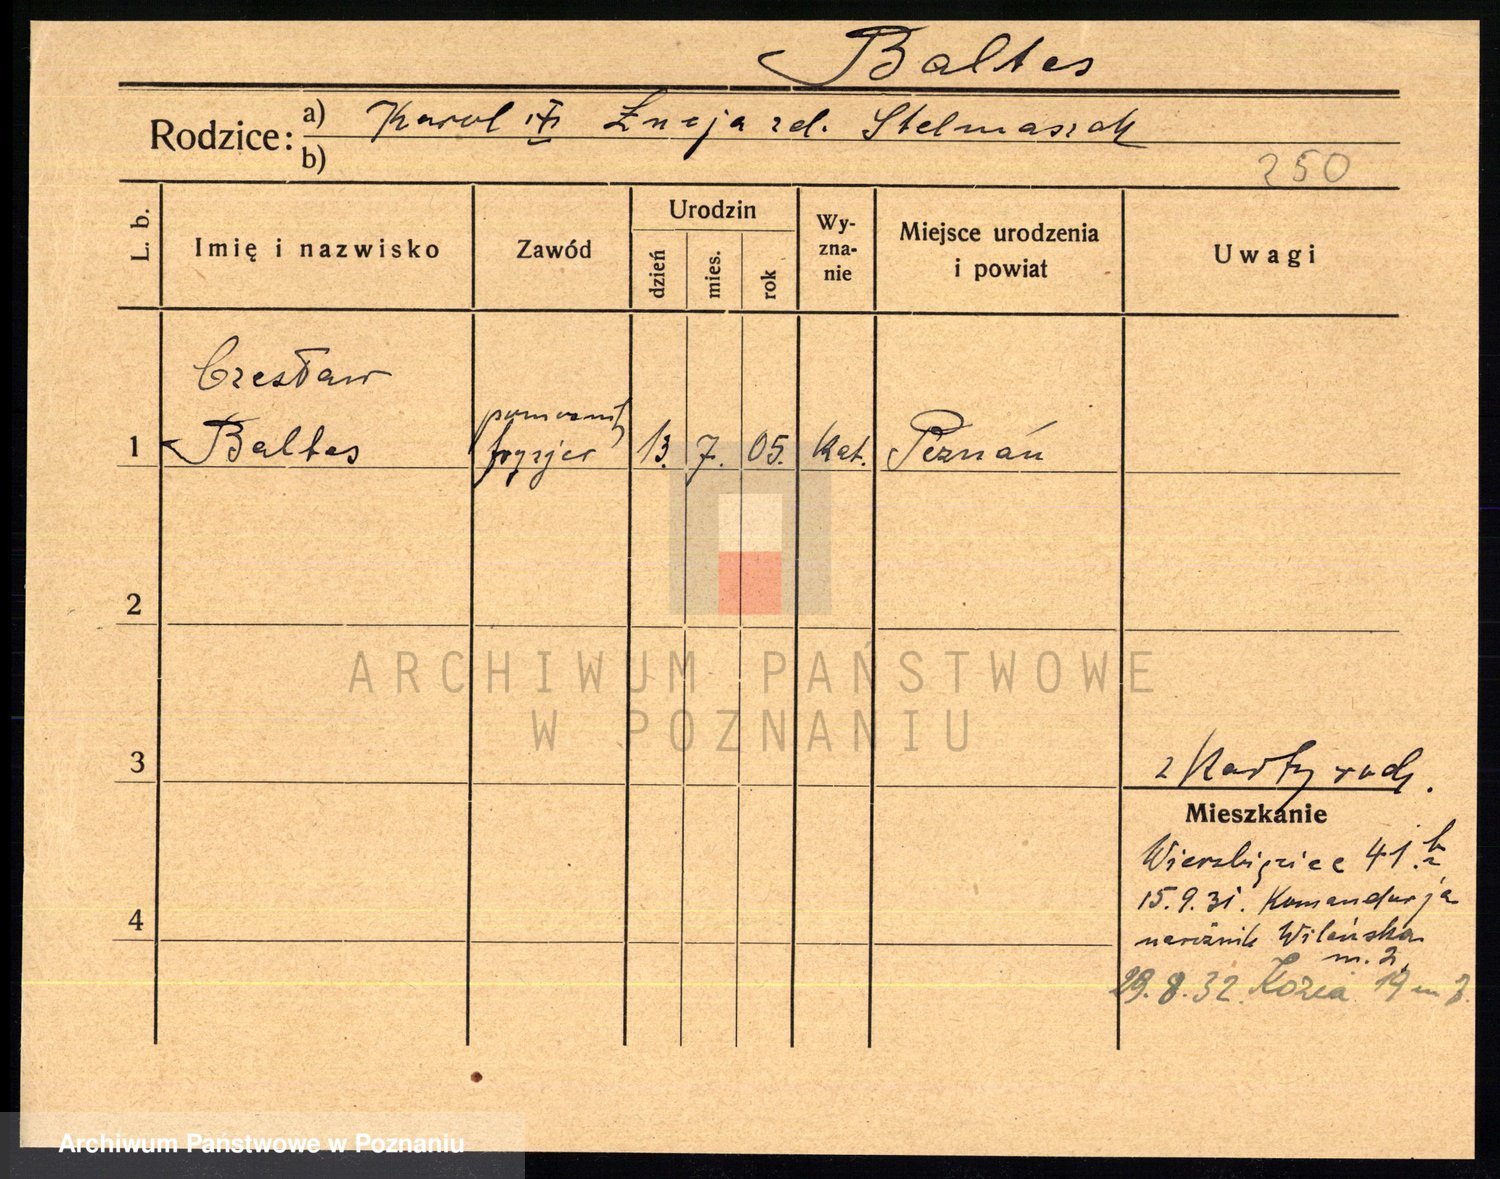 Baltes
Rodzice: a) Karol Łucja zd. Stelmaszak
b)
250
L. b.
Imię i nazwisko
Zawód
Urodzin
dzień
mies.
rok
Wy-
zna-
nie
Miejsce urodzenia
i powiat
Uwagi
Czesław
1 Baltes
pomocnik
fryzjer
13. 7. 05. kat. Poznań
2
3
4
ARCHIWUM PAŃSTWOWE
W POZNANIU
z Karty rodz.
Mieszkanie
Wierzbięcice 41.
15.9.31. Komandorja
narożnik Wileńska
m. 2.
29.8.32. Kozia 19 m 3.
Archiwum Państwowe w Poznaniu